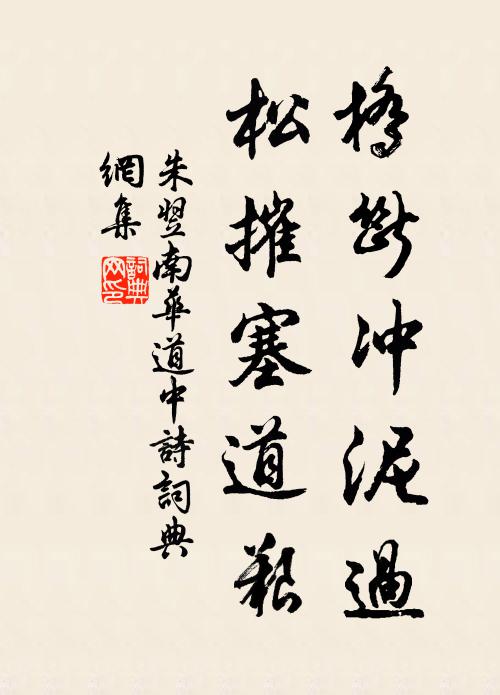 橋斷冲泥過
松摧塞道艱
朱翌南華道中詩詞典
網集
詞典網印